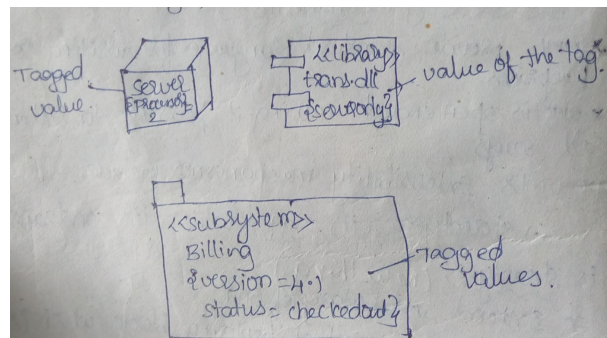 Tagged
value.
Server
2
<<library>>
trans.dll
value of the tag.
<<subsystem>>
Billing
{version = 4.1
status = checkedout}
Tagged
values.